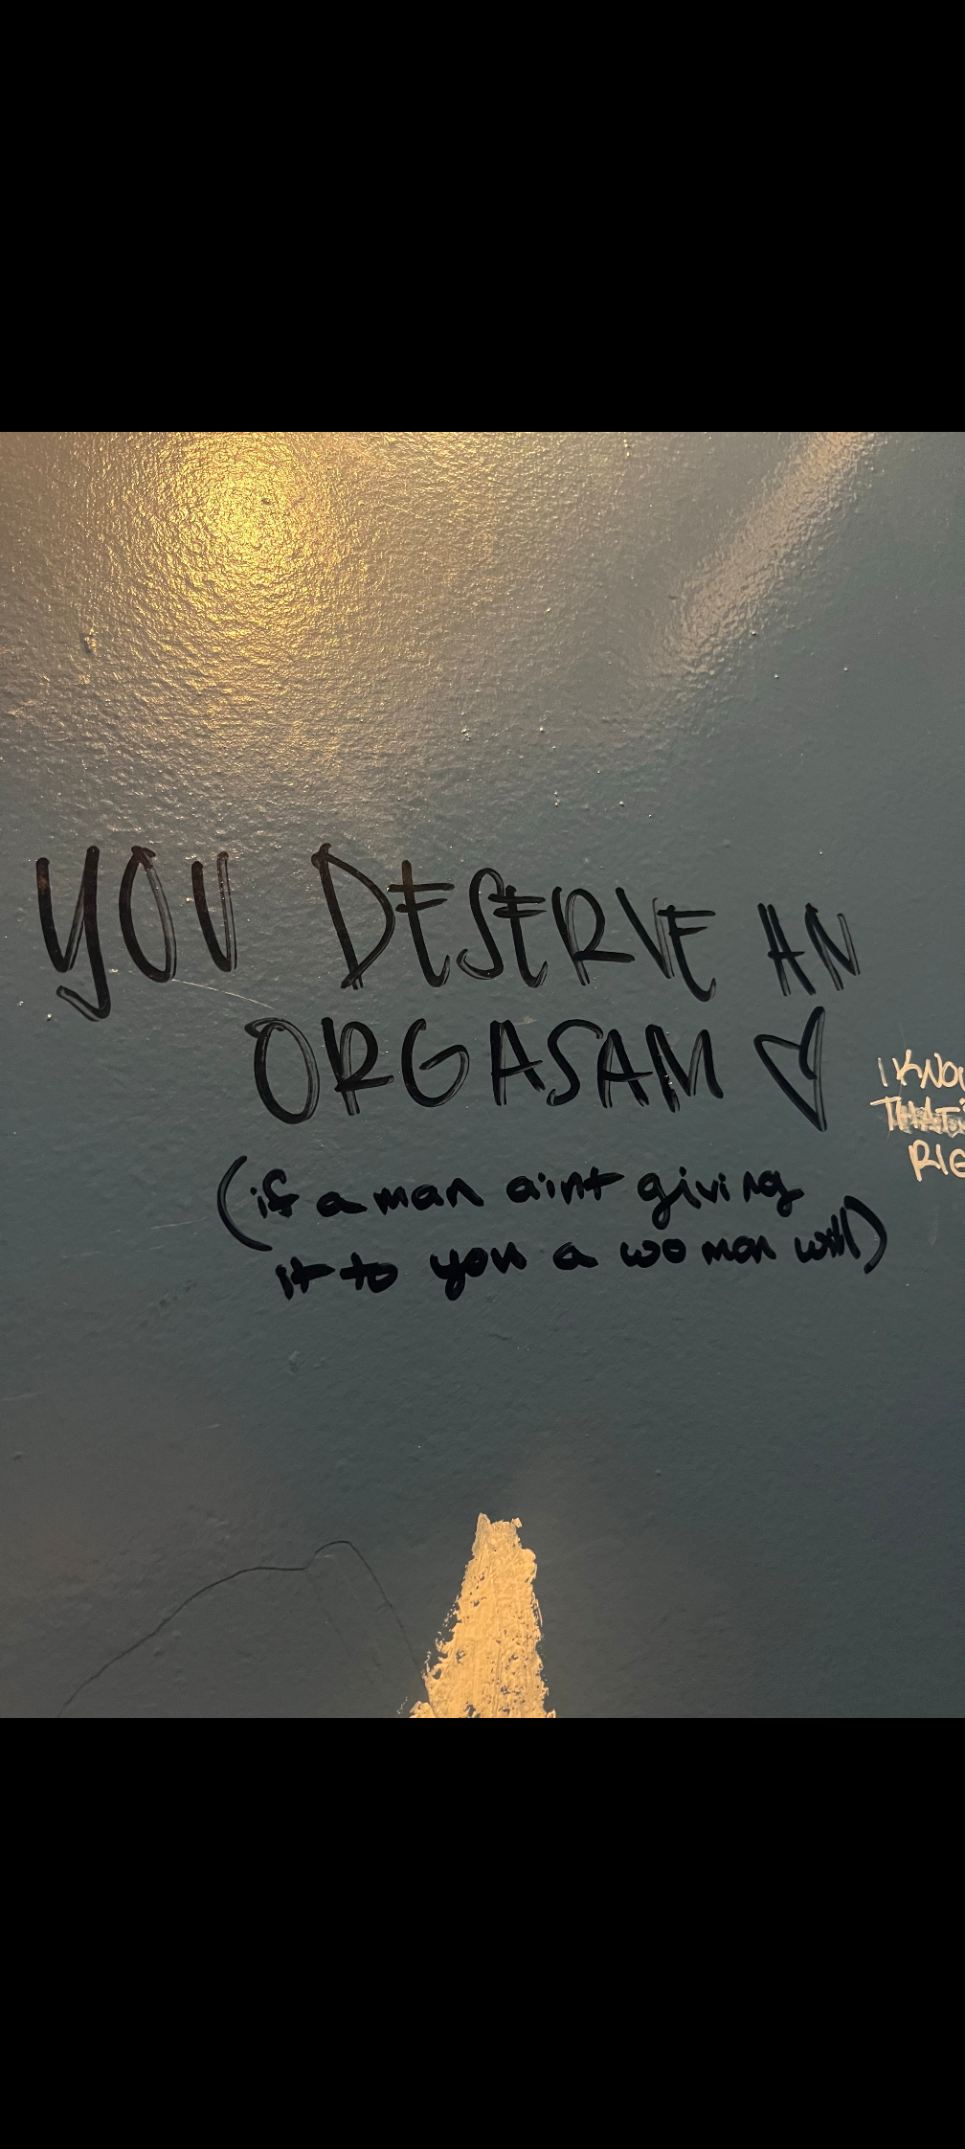 YOU DESERVE AN
ORGASAM
(if a man aint giving
it to you a woman will)
I KNO
THAT
RIG